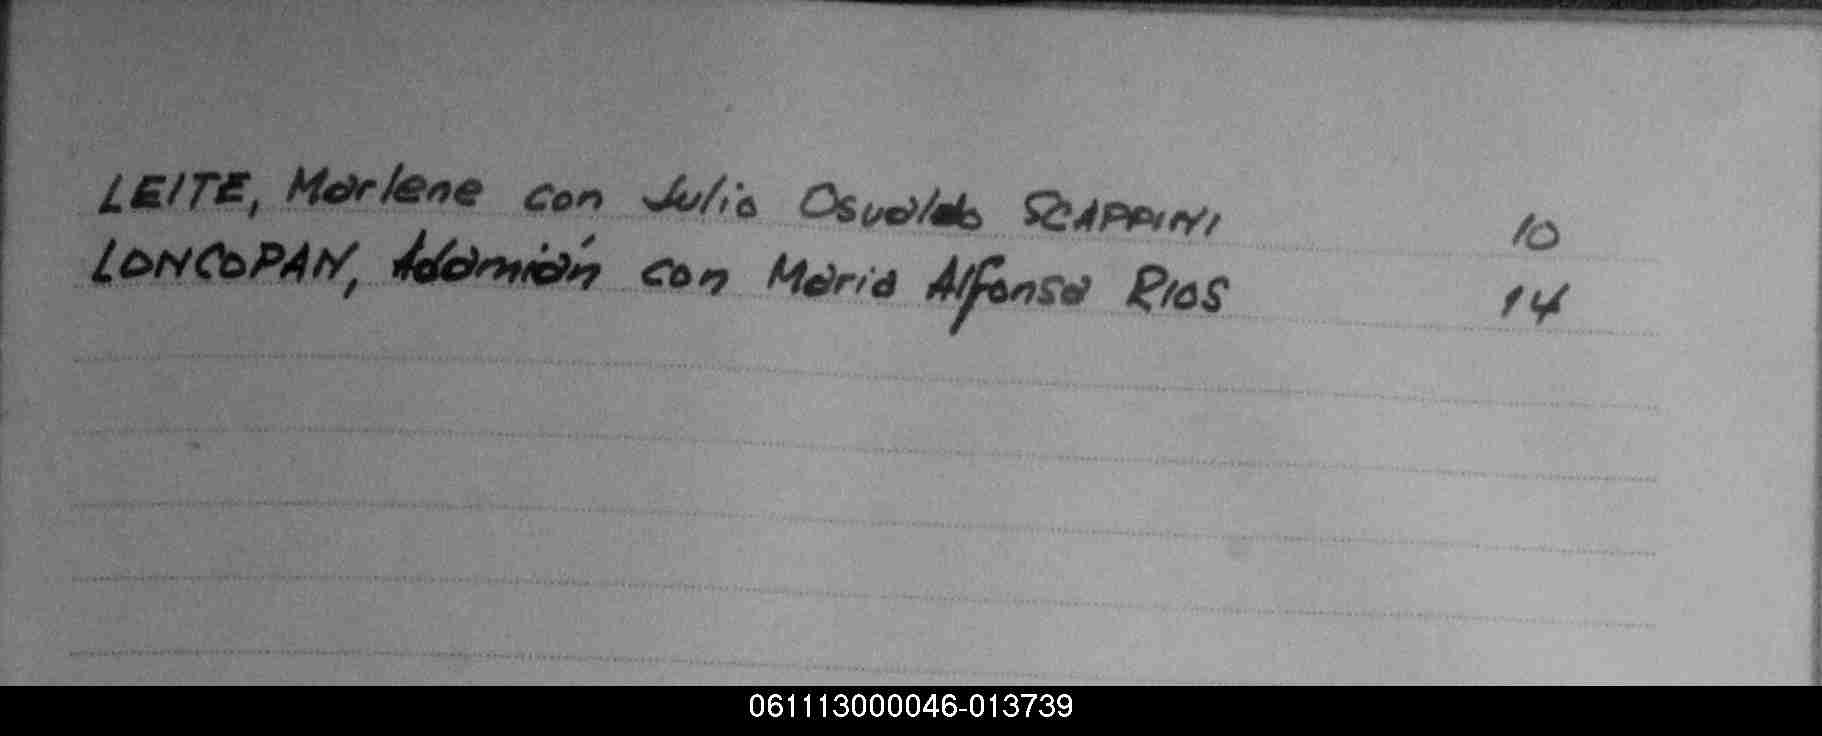 LEITE, Marlene con Julio Osvaldo SCAPPINI 10
LONCOPAN, Adamián con Maria Alfonsa RIOS 14
061113000046-013739